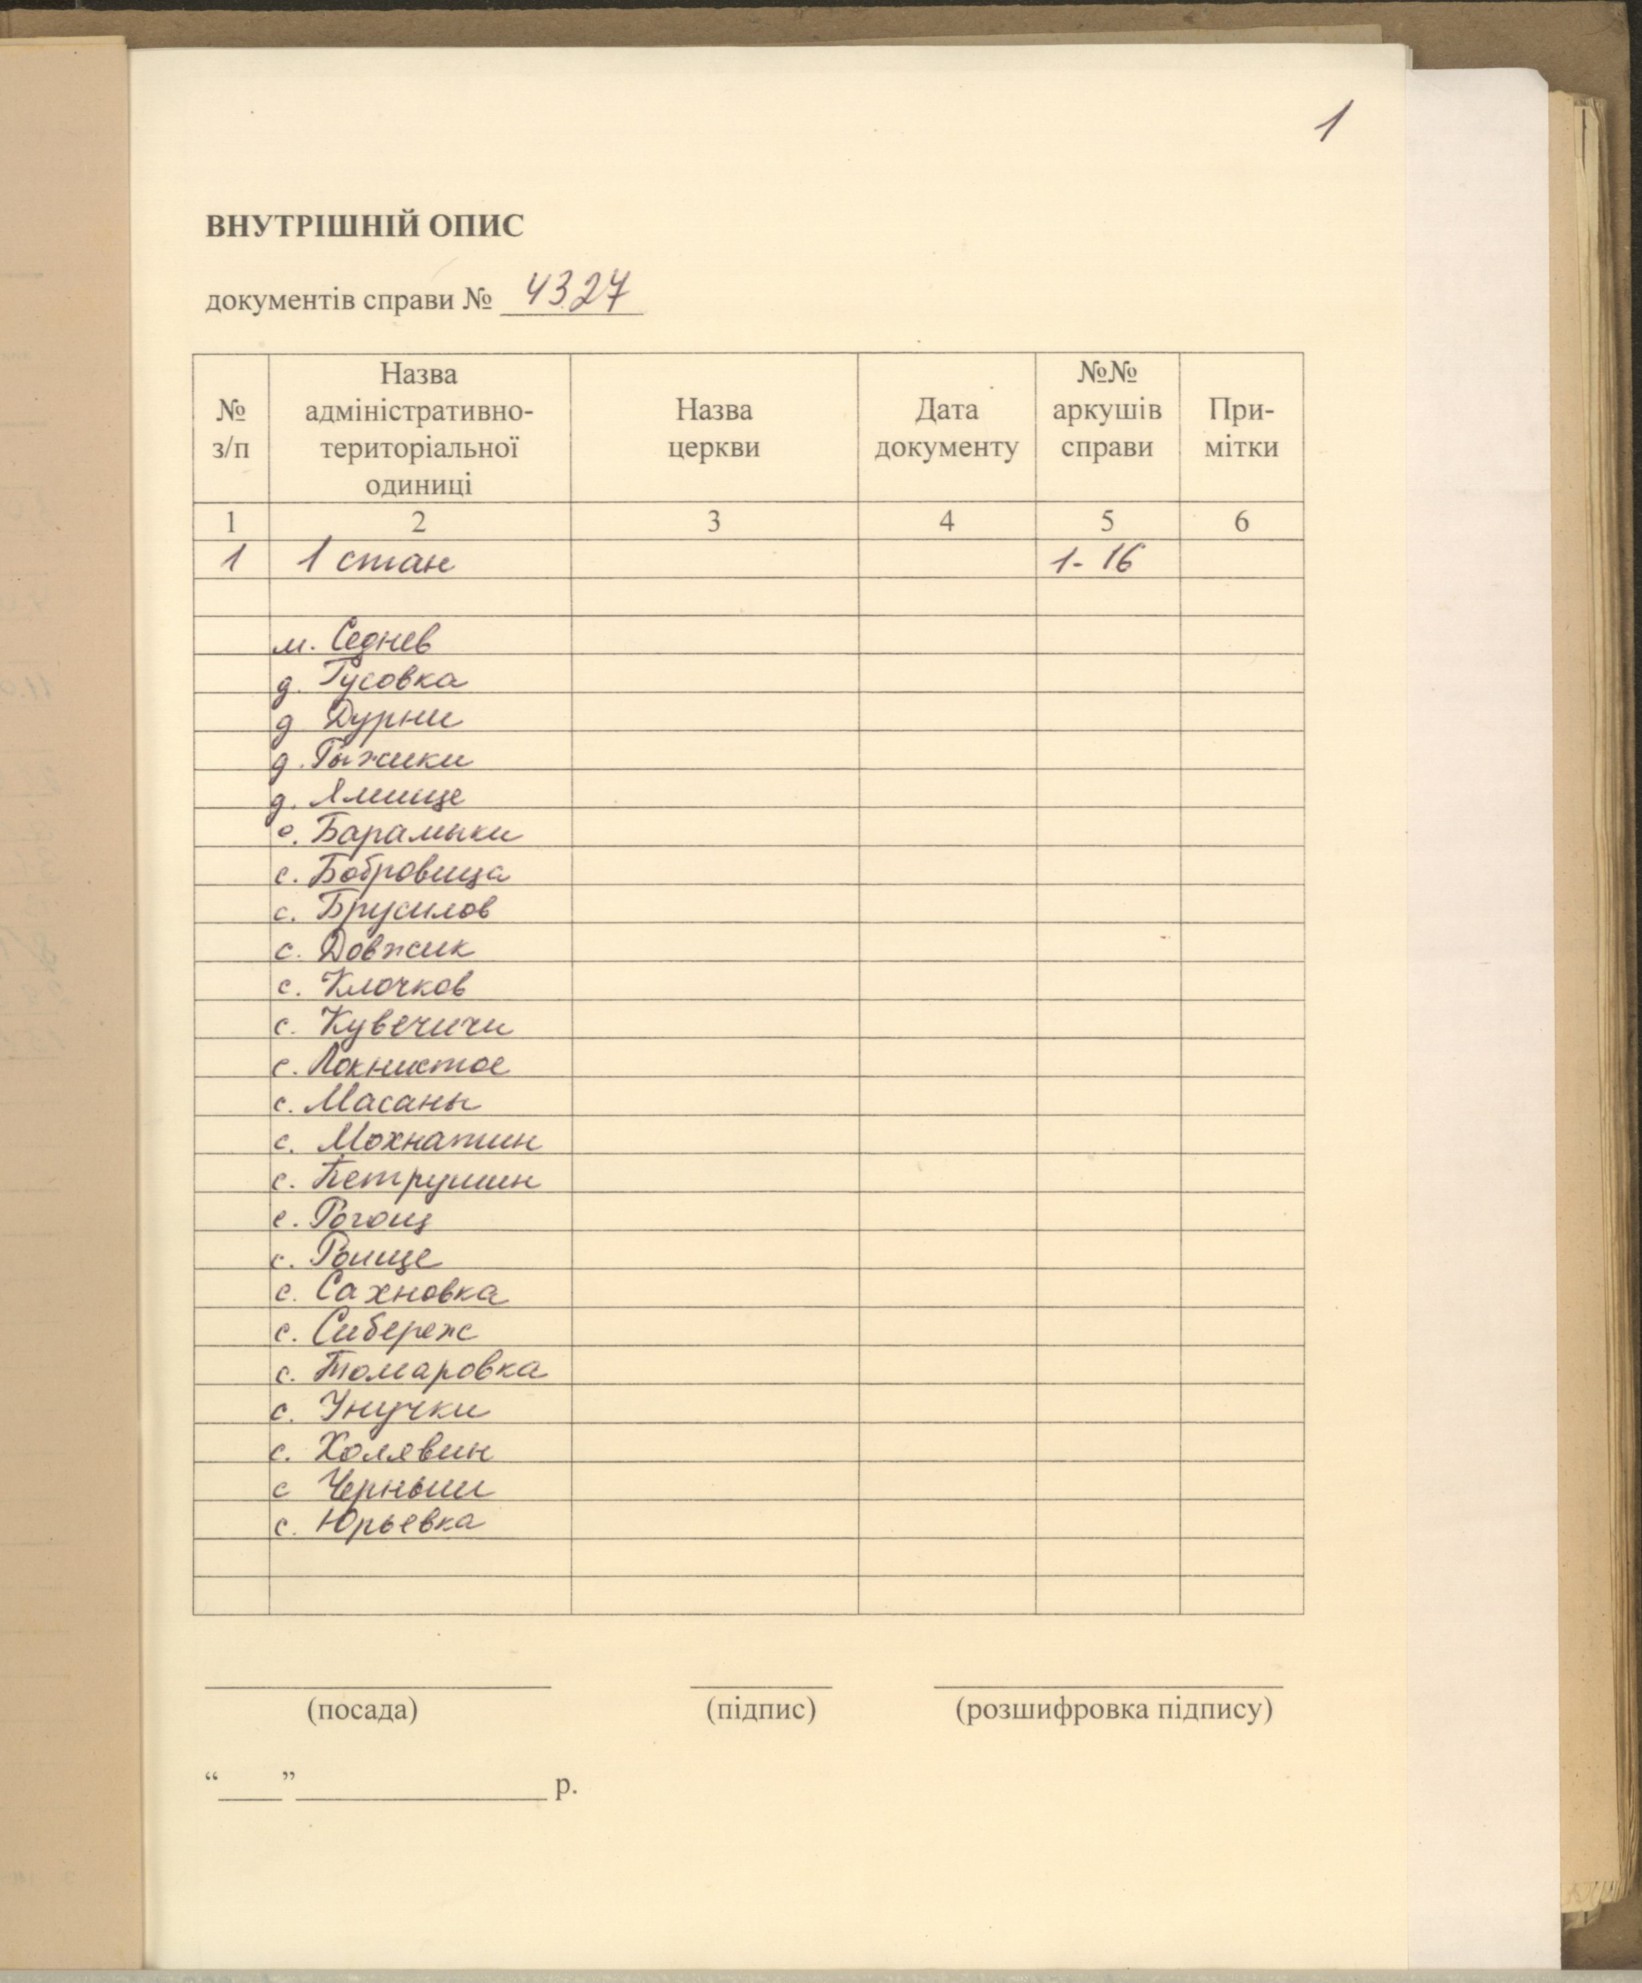 1
ВНУТРІШНІЙ ОПИС
документів справи № 4327
№ з/п
Назва адміністративно-територіальної одиниці
Назва церкви
Дата документу
№№ аркушів справи
При-мітки
1 2 3 4 5 6
1 1 стан 1-16
м. Седнев
д. Гусовка
д Дурни
д. Рыжики
д. Ямище
с. Барамыки
с. Бобровица
с. Брусилов
с. Довжик
с. Клочков
с. Кувечичи
с. Локнистое
с. Масаны
с. Мохнатин
с. Петрушин
с. Рогощ
с. Роище
с. Сахновка
с. Сибереж
с. Томаровка
с. Унучки
с. Холявин
с Черныш
с. Юрьевка
(посада) (підпис) (розшифровка підпису)
“____” ____________ р.